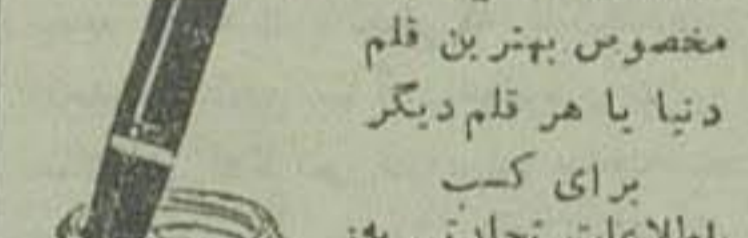 مخصوص بهترین قلم
دنیا یا هر قلم دیگر
برای کسب